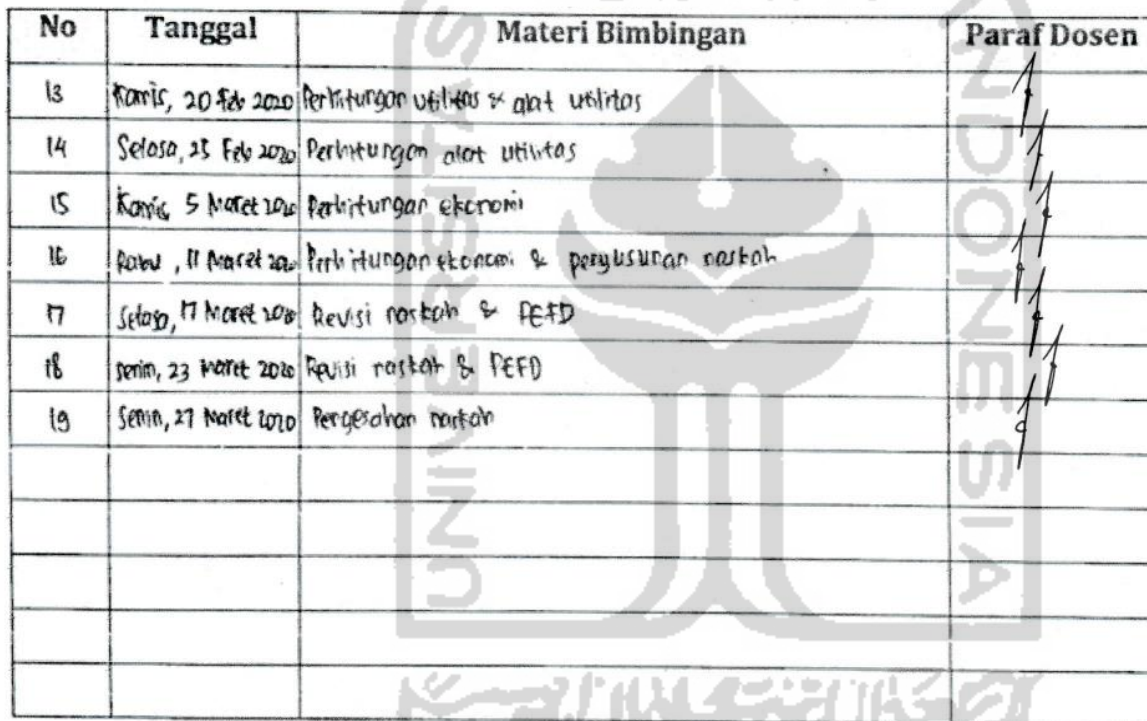 No Tanggal Materi Bimbingan Paraf Dosen
13 Kamis, 20 Feb 2020 Perhitungan utilitas & alat utilitas
14 Selasa, 25 Feb 2020 Perhitungan alat utilitas
15 Kamis, 5 Maret 2020 Perhitungan ekonomi
16 Rabu, 11 Maret 2020 Perhitungan ekonomi & penyusunan naskah
17 Selasa, 17 Maret 2020 Revisi naskah & PEFD
18 Senin, 23 Maret 2020 Revisi naskah & PEFD
19 Senin, 27 Maret 2020 Pengesahan naskah
UNIVERSITAS
INDONESIA